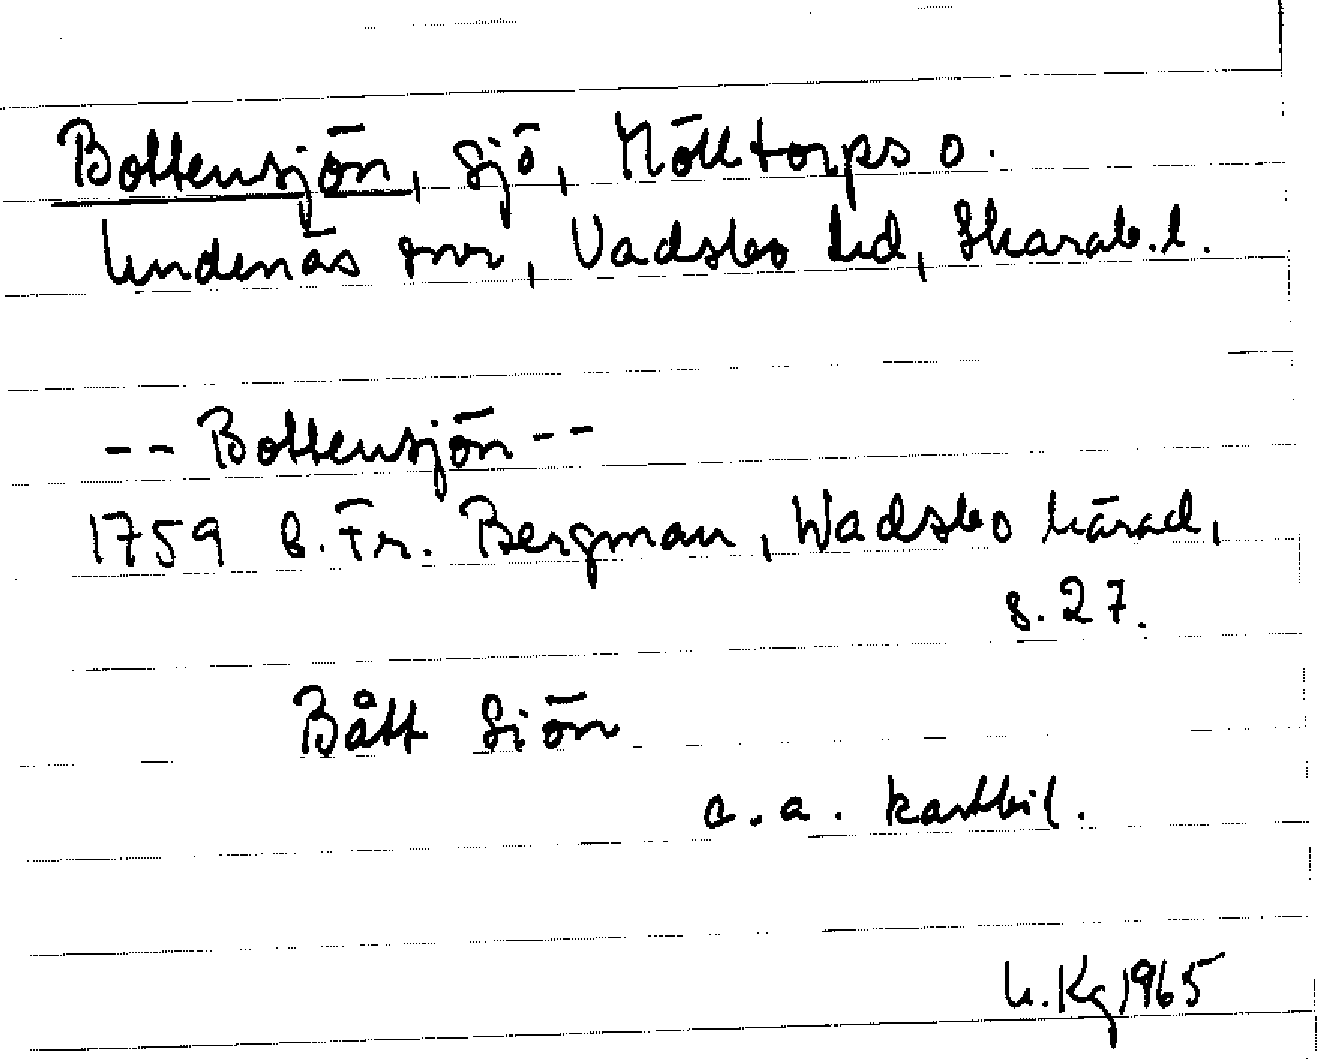 Bottensjön, sjö, Mölltorps o.
Undenäs snr, Vadsbo hd, Skarab.l.
-- Bottensjön --
1759 B. Fr. Bergman, Wadsbo härad,
s. 27.
Bått Siön
a.a. kartbil.
U.Kg 1965